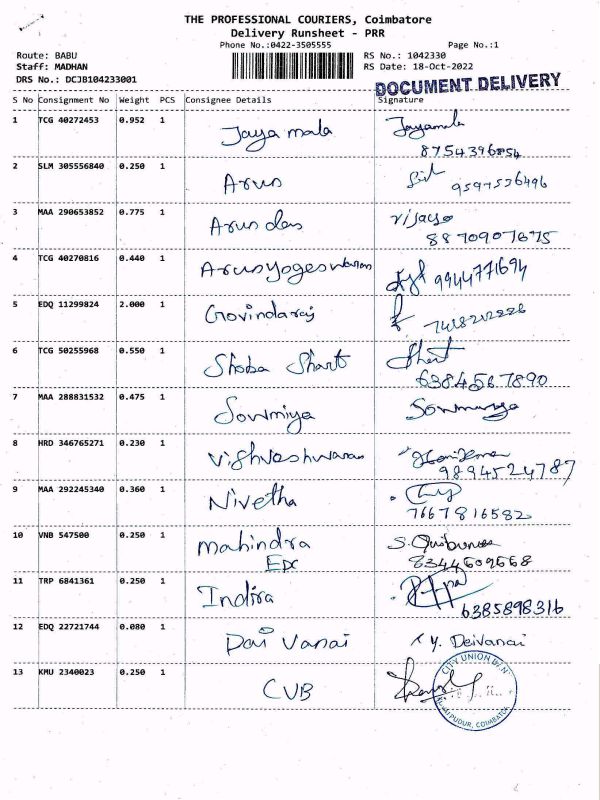 THE PROFESSIONAL COURIERS, Coimbatore
Delivery Runsheet - PRR
Phone No.:0422-3505555 Page No.:1
Route: BABU RS No.: 1042330
Staff: MADHAN RS Date: 18-Oct-2022
DRS No.: DCJB104233001
DOCUMENT DELIVERY
S No Consignment No Weight PCS Consignee Details Signature
1 TCG 40272453 0.952 1 Jaya mala Jayamala
8754396854
2 SLM 305556840 0.250 1 Arun
9597536496
3 MAA 290653852 0.775 1 Arun das Vijaya
8870907675
4 TCG 40270816 0.440 1 Arunyogeswaran
9944771694
5 EDQ 11299824 2.000 1 Govindaraj
6 TCG 50255968 0.550 1 Shoba Shart
6384567890
7 MAA 288831532 0.475 1 Sowmiya Sowmiya
8 HRD 346765271 0.230 1 Vishveshwaran
9894524787
9 MAA 292245340 0.360 1 Nivetha
7667816582
10 VNB 547500 0.250 1 Mahindra
8344609668
11 TRP 6841361 0.250 1 Indira
6385898316
12 EDQ 22721744 0.080 1 Dai Vanai Y. Deivanai
13 KMU 2340023 0.250 1 CVB
CITY UNION
COIMBATORE